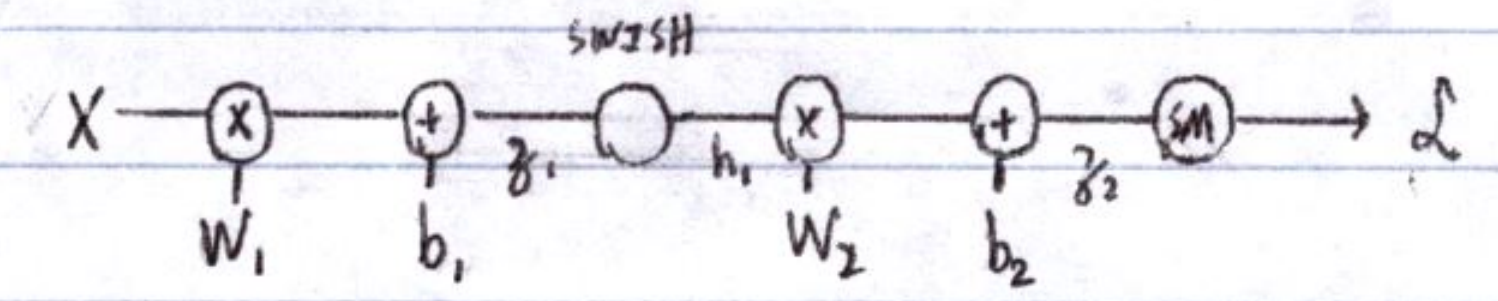 SWISH
X x + z₁ h₁ x + z₂ SM L
W₁ b₁ W₂ b₂